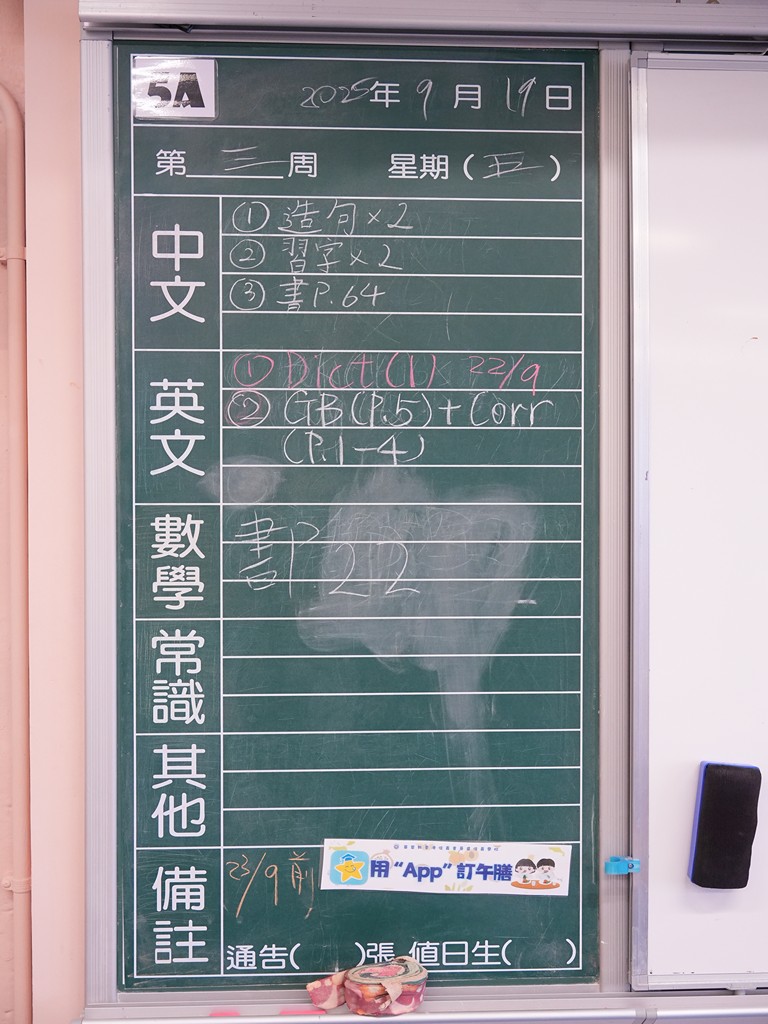 5A
2025年9月19日
第三周 星期(五)
中文
① 造句×2
② 習字×2
③ 書P.64
英文
① Dict(1) 22/9
② GB(P.5)+Corr
(P.1-4)
數學
書P22
常識
其他
備註
23/9前
用“App”訂午膳
通告( )張 值日生( )